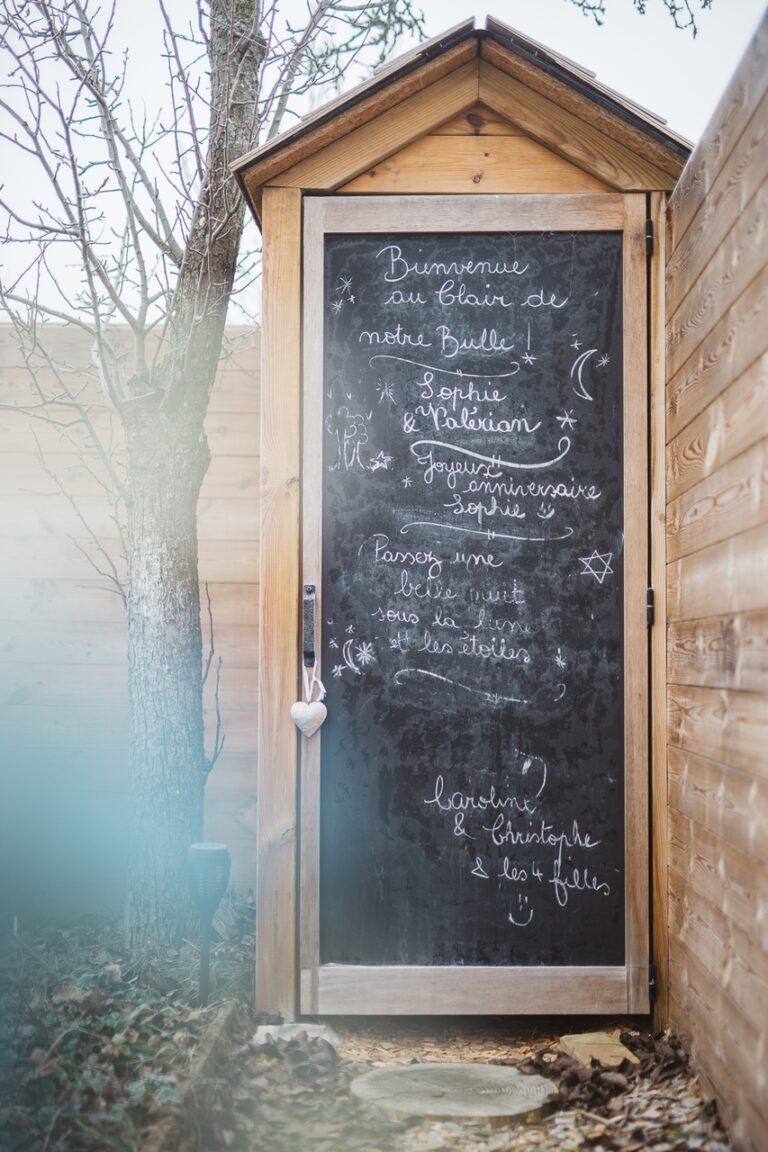 Bienvenue
au Clair de
notre Bulle !
Sophie
& Valérian
Joyeux
anniversaire
Sophie
Passez une
belle nuit
sous la lune
et les étoiles
Caroline
& Christophe
& les 4 filles